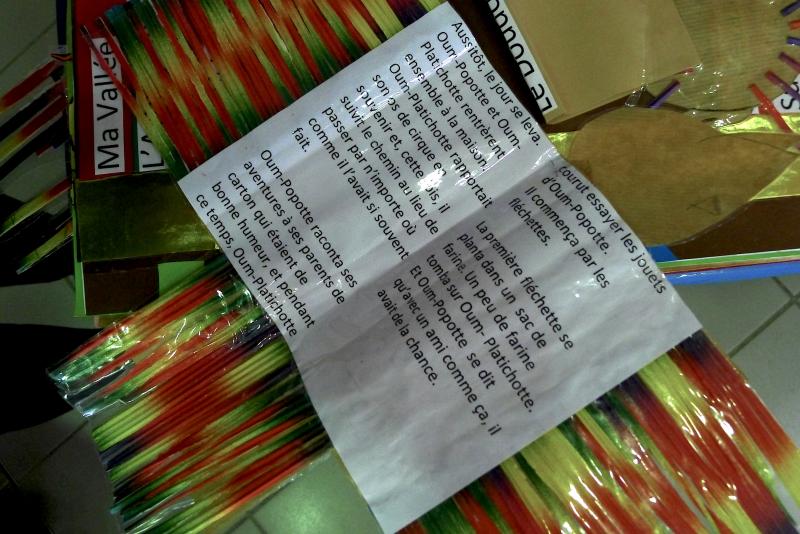 Ma Vallée
L'A
Le Doudou
Aussitôt, le jour se leva
Oum-Popotte et Oum-
Platichotte rentrèrent
ensemble à la maison.
Oum-Platichotte rapportait
son os de cirque en
souvenir et, cette fois, il
suivit le chemin au lieu de
passer par n'importe où
comme il l'avait si souvent
fait.
Oum-Popotte raconta ses
aventures à ses parents de
carton qui étaient de
bonne humeur, et pendant
ce temps, Oum-Platichotte
courut essayer les jouets
d'Oum-Popotte.
Il commença par les
fléchettes.
La première fléchette se
planta dans un sac de
farine. Un peu de farine
tomba sur Oum- Platichotte.
Et Oum-Popotte se dit
qu'avec un ami comme ça, il
avait de la chance.